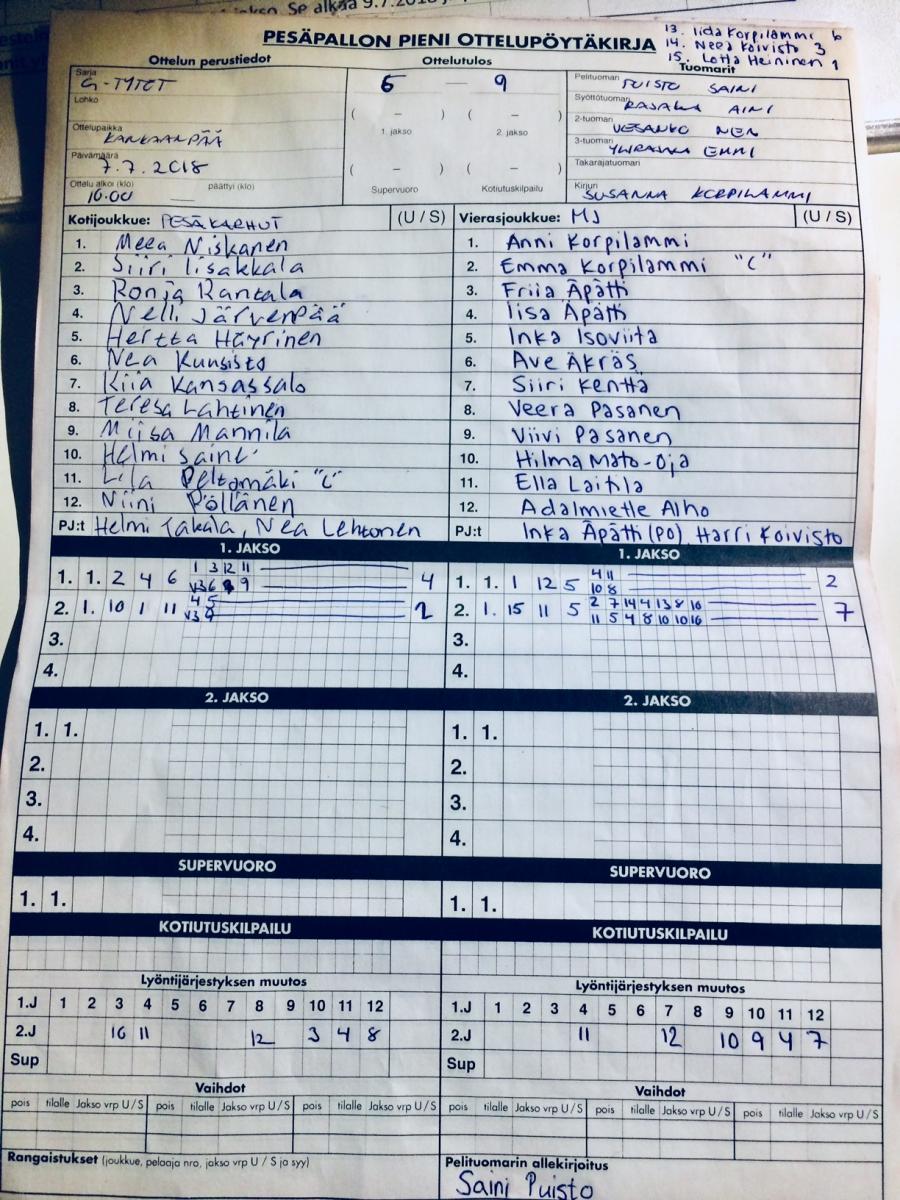 jakso. Se alkaa 9.7.2018
PESÄPALLON PIENI OTTELUPÖYTÄKIRJA
13. Iida Korpilammi 6
14. Neea Koivisto 3
15. Lotta Heininen 1
Ottelun perustiedot Ottelutulos Tuomarit
Sarja G-TYTÖT
Lohko
Ottelupaikka KANKAANPÄÄ
Päivämäärä 7.7.2018
Ottelu alkoi (klo) 10.00 päättyi (klo)
6 – 9
( – ) ( – )
1. jakso 2. jakso
( – ) ( – )
Supervuoro Kotiutuskilpailu
Pelituomari PUISTO SAINI
Syöttötuomari RAJALA AINI
2-tuomari VESANKO
3-tuomari EMMI
Takarajatuomari
Kirjuri SUSANNA KORPILAMMI
Kotijoukkue: PESÄKARHUT (U / S) Vierasjoukkue: MJ (U / S)
1. Meea Niskanen 1. Anni Korpilammi
2. Siiri Iisakkala 2. Emma Korpilammi "C"
3. Ronja Rantala 3. Friia Äpätti
4. Nelli Järvenpää 4. Iisa Äpätti
5. Hertta Häyrinen 5. Inka Isoviita
6. Nea Kuusisto 6. Ave Äkräs
7. Kiia Kansassalo 7. Siiri Kenttä
8. Teresa Lahtinen 8. Veera Pasanen
9. Miisa Mannila 9. Viivi Pasanen
10. Helmi Saine 10. Hilma Mato-oja
11. Lila Peltomäki "C" 11. Ella Laitila
12. Niini Pöllänen 12. Adalmiette Alho
PJ:t Helmi Takala, Nea Lehtonen PJ:t Inka Äpätti (PO), Harri Koivisto
1. JAKSO 1. JAKSO
1. 1. 2 4 6 1 3 12 11 4 1. 1. 1 12 5 4 11 2
V3 6 9 10 8
2. 1. 10 1 11 4 5 2 2. 1. 15 11 5 2 7 14 4 13 8 16 7
V3 9 11 5 4 8 10 10 16
3. 3.
4. 4.
2. JAKSO 2. JAKSO
1. 1. 1. 1.
2. 2.
3. 3.
4. 4.
SUPERVUORO SUPERVUORO
1. 1. 1. 1.
KOTIUTUSKILPAILU KOTIUTUSKILPAILU
Lyöntijärjestyksen muutos Lyöntijärjestyksen muutos
1.J 1 2 3 4 5 6 7 8 9 10 11 12 1.J 1 2 3 4 5 6 7 8 9 10 11 12
2.J 16 11 12 3 4 8 2.J 11 12 10 9 4 7
Sup Sup
Vaihdot Vaihdot
pois tilalle Jakso vrp U / S pois tilalle Jakso vrp U / S pois tilalle Jakso vrp U / S pois tilalle Jakso vrp U / S pois tilalle Jakso vrp U / S pois tilalle Jakso vrp U / S
Rangaistukset (joukkue, pelaaja nro, jakso vrp U / S ja syy) Pelituomarin allekirjoitus
Saini Puisto